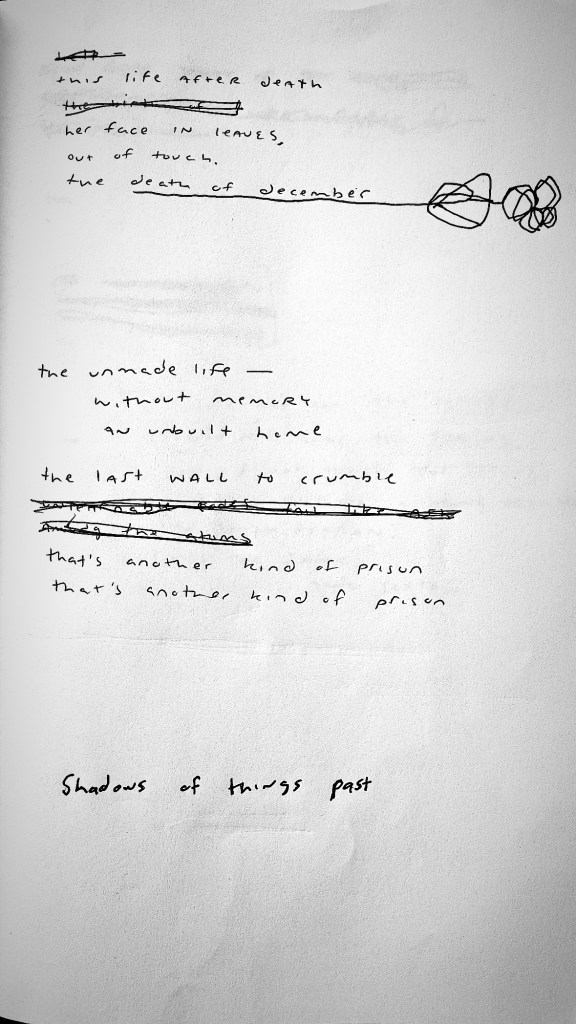 this life AFTER death
the birth of
her face IN leAVES,
out of touch.
the death of december
the unmade life —
without memory
an unbuilt home
the last WALL to crumble
fall like
Among the atoms
that's another kind of prison
that's another kind of prison
Shadows of things past